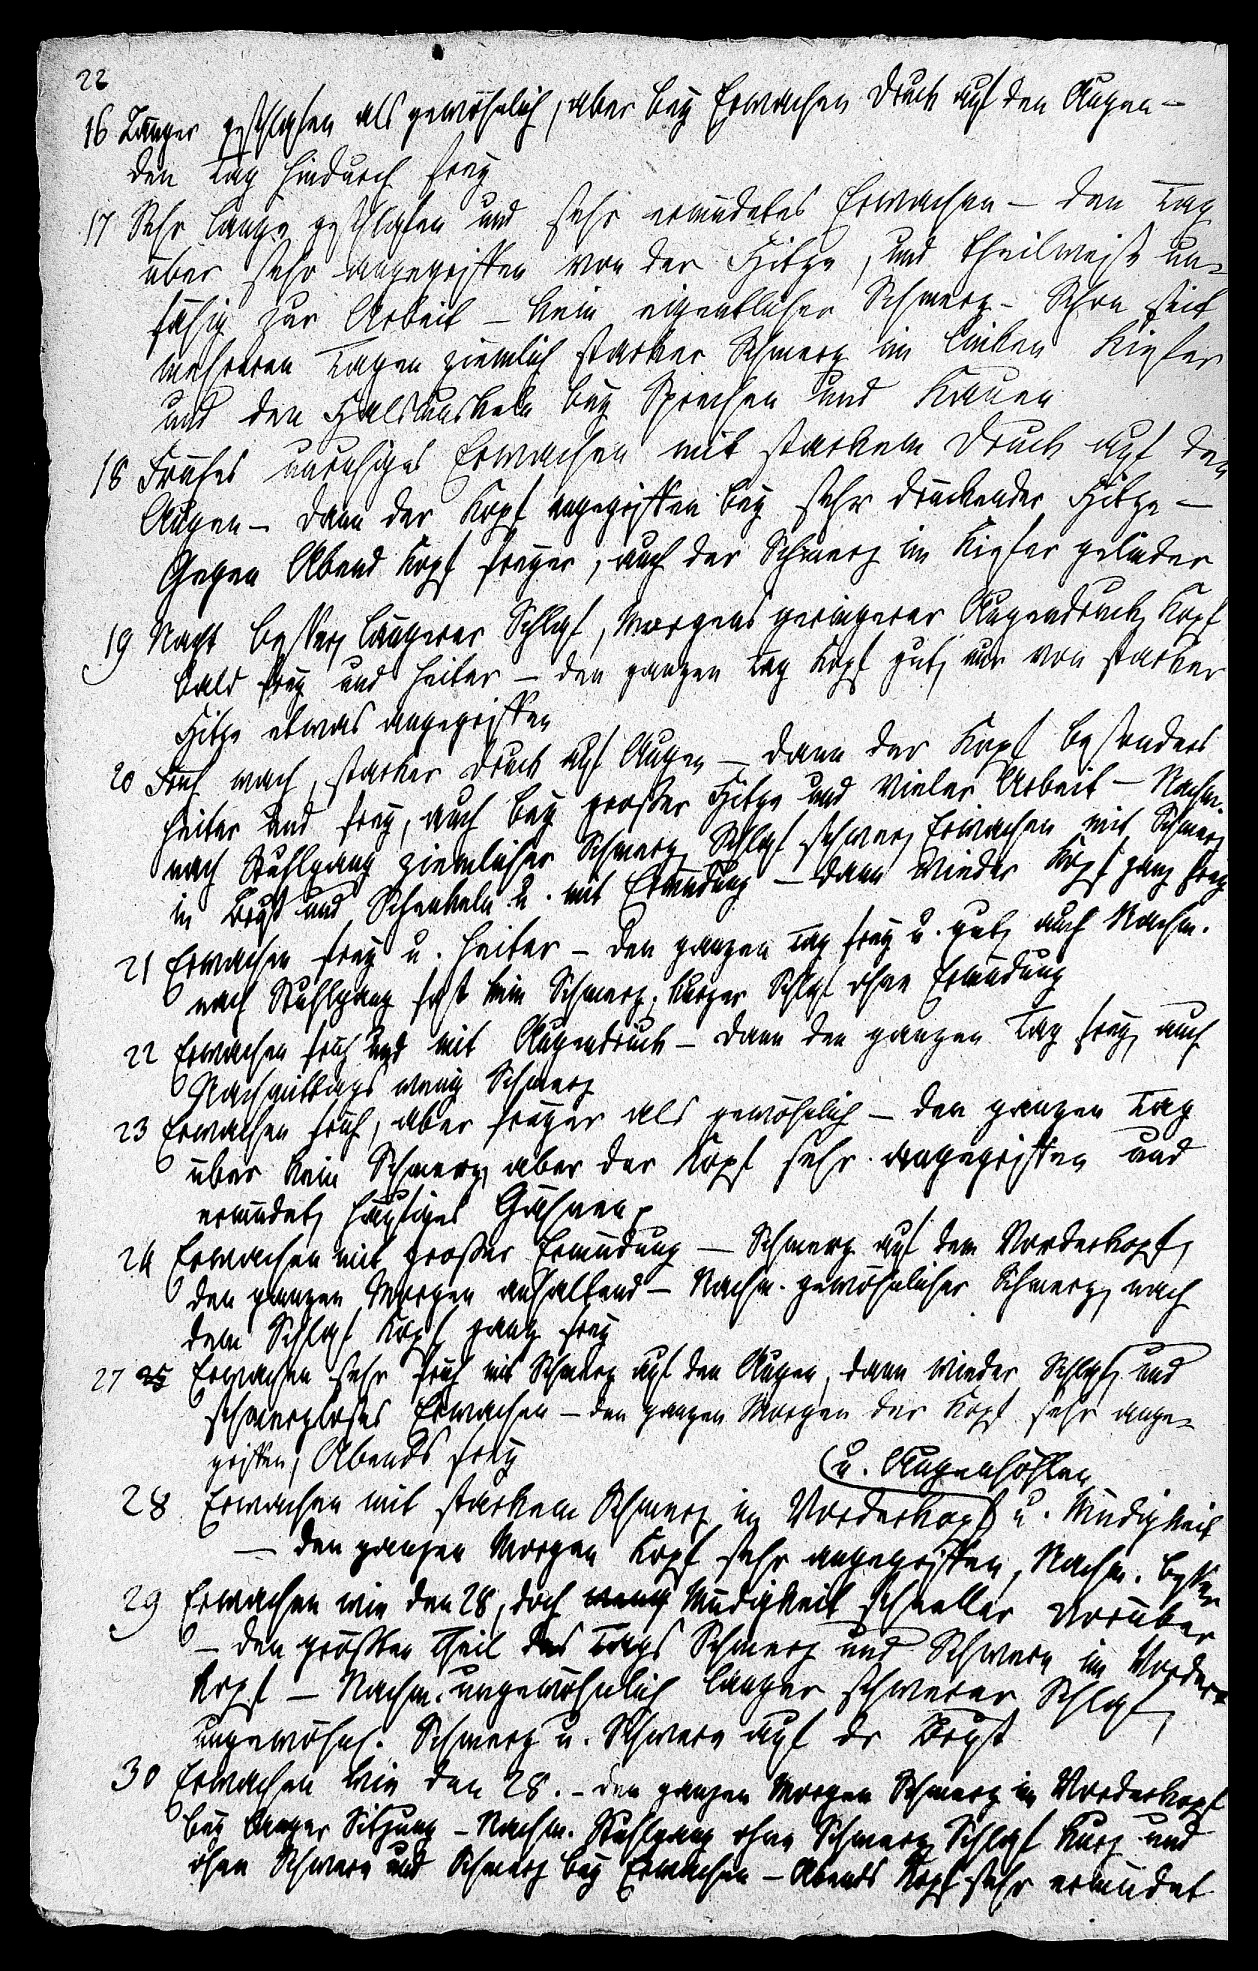 22
16 Länger geschlafen als gewöhnlich, aber bey Erwachen Druck auf den Augen –
den Tag hindurch frey
17 Sehr lange geschlafen und sehr ermüdetes Erwachen – den Tag
über sehr angegriffen von der Hitze, und theilweise un-
fähig zur Arbeit – kein eigentlicher Schmerz – Schon seit
mehreren Tagen ziemlich starker Schmerz im linken Kiefer
und den Halsmuskeln bey Sprechen und Kauen
18 Frühes unruhiges Erwachen mit starkem Druck auf den
Augen – dann der Kopf angegriffen bey sehr drückender Hitze –
Gegen Abend Kopf freyer, auch der Schmerz im Kiefer gelinder
19 Nacht besser, längerer Schlaf, Morgens geringerer Augendruck, Kopf
bald frey und heiter – den ganzen Tag Kopf gut, nur von starker
Hitze etwas angegriffen
20 Früh wach, starker Druck auf Augen – dann der Kopf besonders
heiter und frey, auch bey großer Hitze und vieler Arbeit – Nachm.
nach Stuhlgang ziemlicher Schmerz, Schlaf schwer, Erwachen mit Schmerz
in Brust und Schenkeln u. mit Ermüdung – dann wieder Kopf ganz frey
21 Erwachen frey u. heiter – den ganzen Tag frey u. gut, auch Nachm.
nach Stuhlgang fast kein Schmerz, kurzer Schlaf ohne Ermüdung
22 Erwachen früh und mit Augendruck – dann den ganzen Tag frey, auch
Nachmittags wenig Schmerz
23 Erwachen früh, aber freyer als gewöhnlich – den ganzen Tag
über kein Schmerz, aber der Kopf sehr angegriffen und
ermüdet, häufiges Gähnen.
24 Erwachen mit großer Ermüdung – Schmerz auf dem Vorderkopf,
den ganzen Morgen anhaltend – Nachm. gewöhnlicher Schmerz, nach
dem Schlaf Kopf ganz frey
27 25 Erwachen sehr früh mit Schmerz auf den Augen, dann wieder Schlaf, und
schmerzloses Erwachen – den ganzen Morgen der Kopf sehr ange-
griffen, Abends frey
u. Augenhöhlen
28 Erwachen mit starkem Schmerz im Vorderkopf u. Müdigkeit
– den ganzen Morgen Kopf sehr angegriffen, Nachm. besser
29 Erwachen wie den 28, doch wenig Müdigkeit schneller vorüber
– den größten Theil des Tags Schmerz und Schwere im Vorder-
kopf – Nachm. ungewöhnlich langer schwerer Schlaf,
ungewöhnl. Schmerz u. Schwere auf dr Brust
30 Erwachen wie den 28. – den ganzen Morgen Schmerz im Vorderkopf
bey langer Sitzung – Nachm. Stuhlgang ohne Schmerz, Schlaf kurz und
ohne Schwere und Schmerz bey Erwachen – Abends Kopf sehr ermüdet